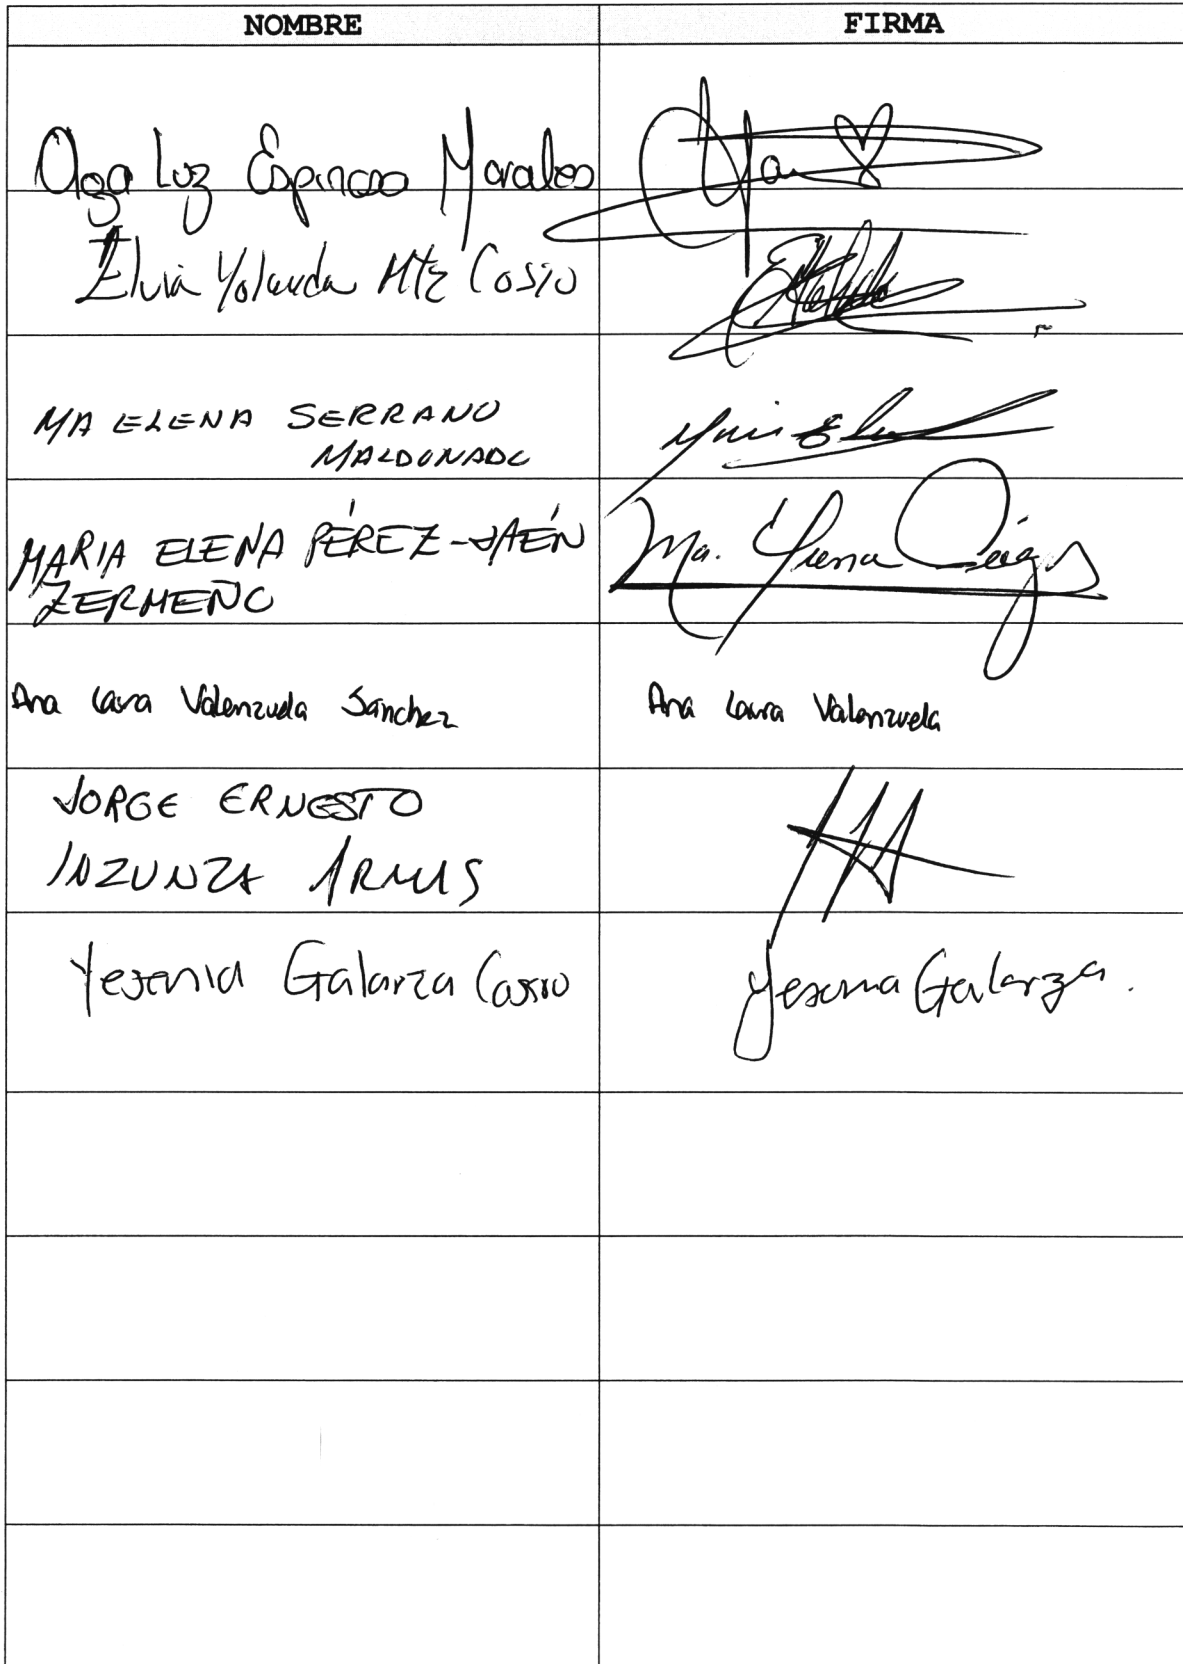 NOMBRE FIRMA
Olga Luz Espinosa Morales
Elvia Yolanda Mtz Cosio
MA ELENA SERRANO
MALDONADO
MARIA ELENA PÉREZ-JAÉN
ZERMEÑO
Ma. Elena
Ana Laura Valenzuela Sánchez Ana Laura Valenzuela
JORGE ERNESTO
INZUNZA ARMAS
Yesenia Galarza Castro Yesenia Galarza.